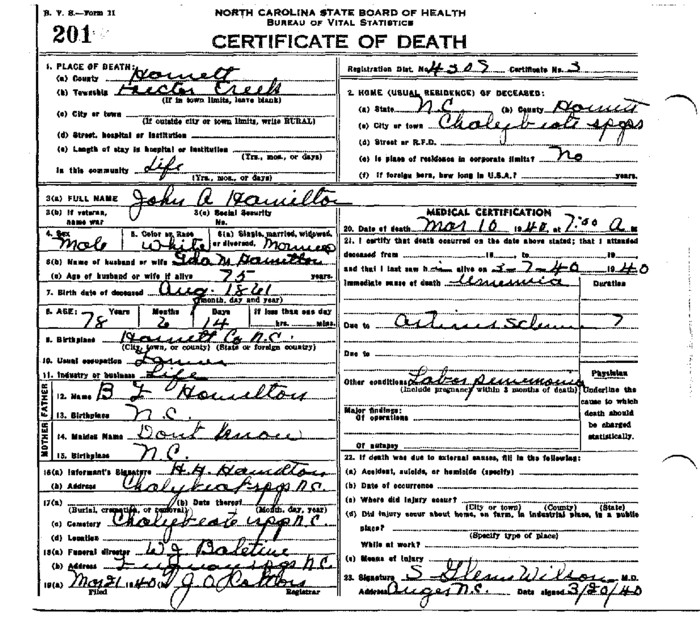 B. V. S.—Form 11
NORTH CAROLINA STATE BOARD OF HEALTH
BUREAU OF VITAL STATISTICS
201
CERTIFICATE OF DEATH
Registration Dist. No. Certificate No. 3
1. PLACE OF DEATH:
(a) County Harnett
(b) Township Hector Creek
(If in town limits, leave blank)
(c) City or town
(If outside city or town limits, write RURAL)
(d) Street, hospital or institution
(e) Length of stay in hospital or institution
(Yrs., mos., or days)
In this community Life
(Yrs., mos., or days)
2. HOME (USUAL RESIDENCE) OF DECEASED:
(a) State N.C. (b) County Harnett
(c) City or town Chalybeate spgs
(d) Street or R.F.D.
(e) Is place of residence in corporate limits? No
(f) If foreign born, how long in U.S.A.? years.
3(a) FULL NAME John A Hamilton
3(b) If veteran, name war 3(c) Social Security No.
4. Sex Male 5. Color or Race White 6(a) Single, married, widowed, or divorced, Married
6(b) Name of husband or wife Ida M. Hamilton
(c) Age of husband or wife if alive 75 years.
7. Birth date of deceased Aug. 1861
(month, day and year)
8. AGE: 78 Years Months 6 Days 14 If less than one day hrs. mins.
9. Birthplace Harnett Co N.C.
(City, town, or county) (State or foreign country)
10. Usual occupation
11. Industry or business Life
FATHER
12. Name B F Hamilton
13. Birthplace N.C.
MOTHER
14. Maiden Name Dont know
15. Birthplace N.C.
16(a) Informant's Signature H.H. Hamilton
(b) Address Chalybeat spgs N.C.
17(a) (b) Date thereof
(Burial, cremation, or removal) (Month, day, year)
(c) Cemetery Chalybeate spgs N.C.
(d) Location
18(a) Funeral director W J
(b) Address spgs N.C.
19(a) Mar 21 1940 (b) J. A.
Filed Registrar
MEDICAL CERTIFICATION
20. Date of death Mar 10 1940, at 7:00 A M.
21. I certify that death occurred on the date above stated; that I attended
deceased from 19 , to 19
and that I last saw h i alive on 3-7-40 1940
Immediate cause of death Duration
Due to 7
Due to
Other conditions
(Include pregnancy within 3 months of death)
Physician
Underline the cause to which death should be charged statistically.
Major findings:
Of operations
Of autopsy
22. If death was due to external causes, fill in the following:
(a) Accident, suicide, or homicide (specify)
(b) Date of occurrence
(c) Where did injury occur?
(City or town) (County) (State)
(d) Did injury occur about home, on farm, in industrial place, in a public
place?
(Specify type of place)
While at work?
(e) Means of injury
23. Signature S Glenn Wilson M.D.
Address N.C. Date signed 3/20/40